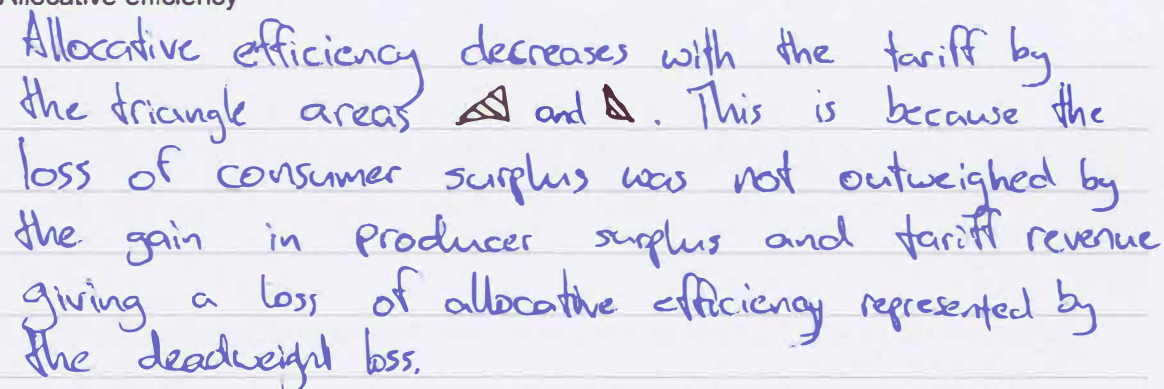 Allocative efficiency
Allocative efficiency decreases with the tariff by
the triangle areas and . This is because the
loss of consumer surplus was not outweighed by
the gain in producer surplus and tariff revenue
giving a loss of allocative efficiency represented by
the deadweight loss.